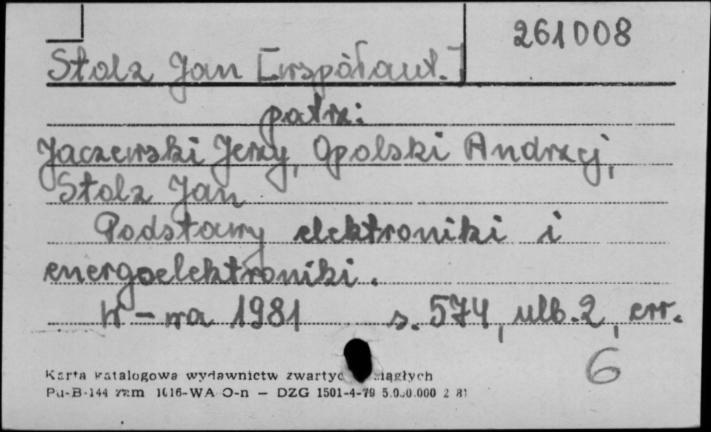 261008
Stolz Jan [współaut.]
patrz:
Jaczewski Jerzy, Opolski Andrzej,
Stolz Jan
Podstawy elektroniki i
energoelektroniki.
W-wa 1981 s. 574, ulb. 2, err.
6
Karta katalogowa wydawnictw zwartych ciągłych
Pu-B-144 zam 1016-WA O-n — DZG 1501-4-79 5.000.000 2 81